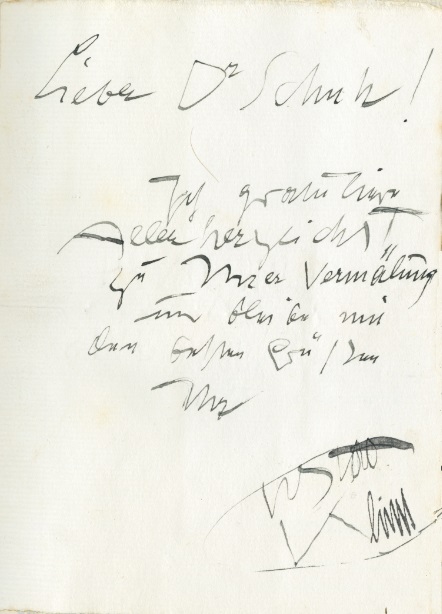 Lieber Dr Schuh!
Ich gratuliere
allerherzlichst
zu Ihrer Vermälung
und bleibe mit
den besten Grüßen
Ihr
Gustav
Klimt